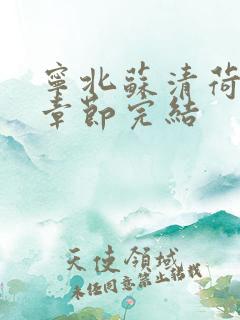 寧北蘇清荷
章節完結
天使領域
未經同意禁止轉載